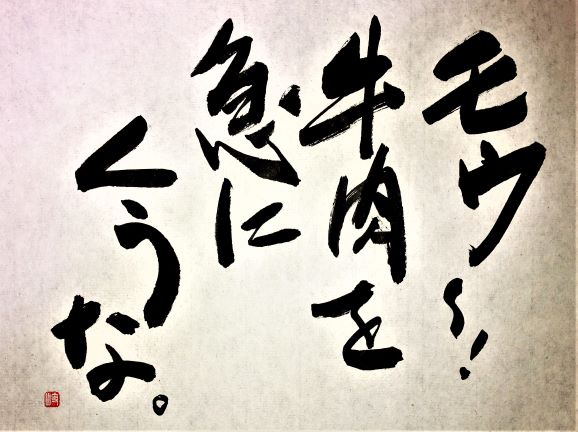 モウ〜!
牛肉を
急に
くうな。